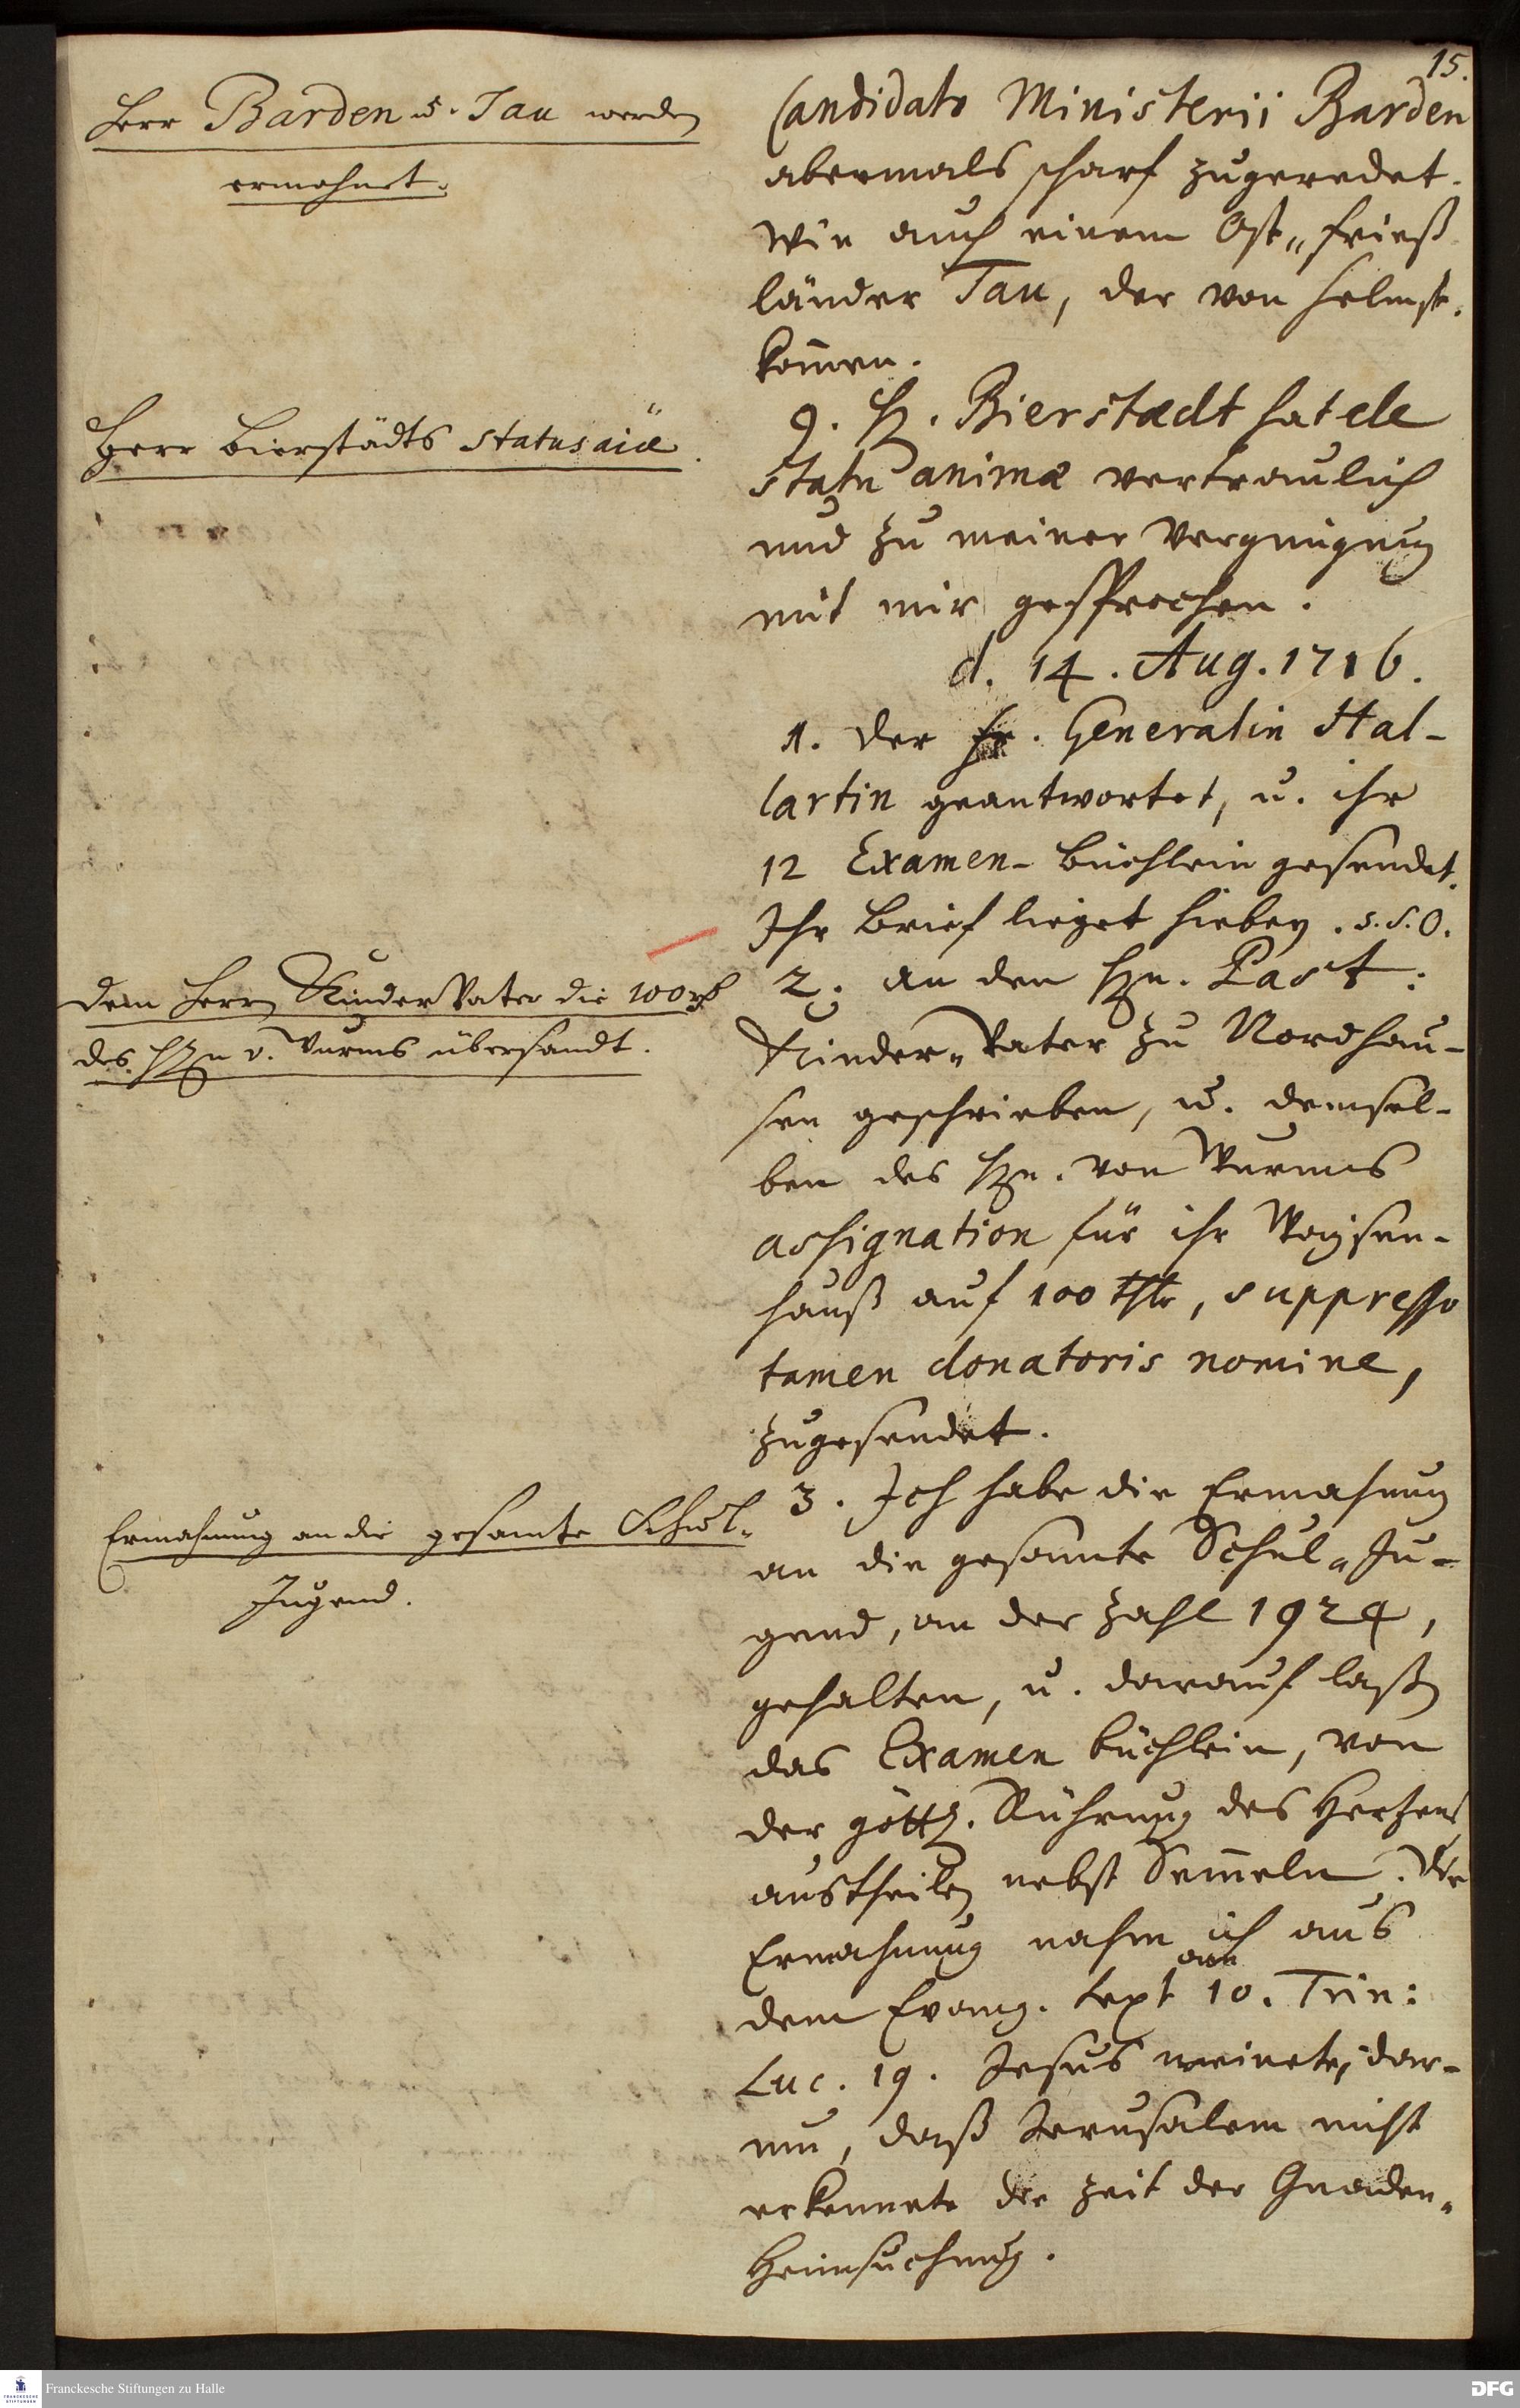 15.
Herr Barden u. Tau werden
ermahnet.
Candidato Ministerii Barden
abermals scharf zugeredet.
Wie auch einem Ost-Frieß
länder Tau, der von Helmst.
kom̄en.
Herr Bierstädts Status aiæ.
9. H. Bierstædt hat de
statu animæ vertraulich
und zu meiner Vergnügung
mit mir gesprochen.
d. 14. Aug. 1716.
1. Der Fr. Generalin Hal-
lartin geantwortet, u. ihr
12 Examen-Büchlein gesendet.
Ihr Brief lieget hiebey. s. S. O.
Dem Herrn Kinder Vater die 100 rthl
des Hn v. Wurms übersandt.
2. an den Hn. Past:
Kinder-Vater zu Nordhau-
sen geschrieben, u. demsel-
ben des Hn. von Wurms
assignation für ihr Waysen-
hauß auf 100 thlr, suppresso
tamen donatoris nomine,
zugesendet.
Ermahnung an die gesamte Schul-
Jugend.
3. Ich habe die Ermahnung
an die gesamte Schul-Ju-
gend, an der Zahl 1924,
gehalten, u. darauf laßen
das Examen büchlein, von
der göttl. Rührung des Hertzens
austheilen nebst Sem̄eln. Die
Ermahnung nahm ich aus
dem Evang. text am 10. Trin:
Luc. 19. Jesus weinete, dar-
um, daß Jerusalem nicht
erkennete die Zeit der Gnaden-
Heimsuchung.
Franckesche Stiftungen zu Halle
DFG